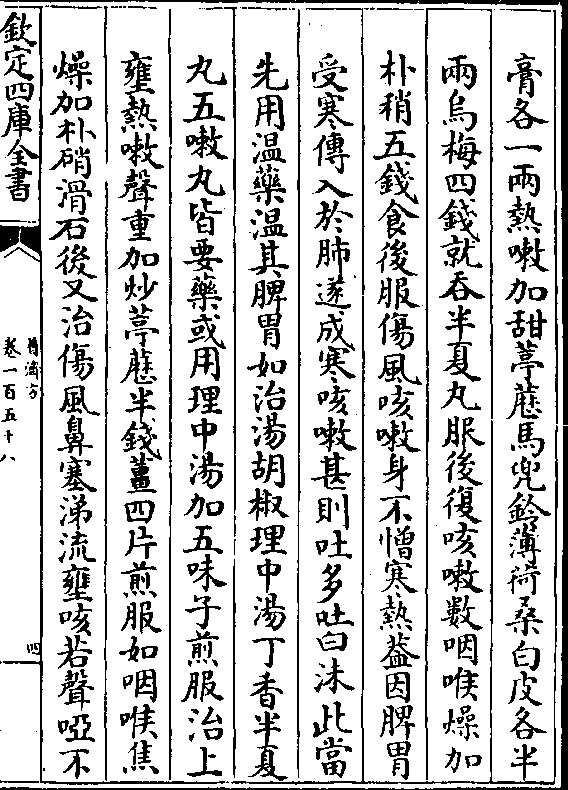 膏各一兩熱嗽加甜葶藶馬兜鈴薄荷桑白皮各半
兩烏梅四錢就吞半夏丸服後復咳嗽數咽喉燥加
朴稍五錢食後服傷風咳嗽身不憎寒熱葢因脾胃
受寒傳入於肺遂成寒咳嗽甚則吐多吐白沫此當
先用溫藥温其脾胃如治湯胡椒理中湯丁香半夏
丸五嗽丸皆要藥或用理中湯加五味子煎服治上
壅熱嗽聲重加炒葶藶半錢薑四片煎服如咽喉焦
燥加朴硝滑石後又治傷風鼻塞涕流壅咳若聲啞不
欽定四庫全書
普濟方
卷一百五十八
四